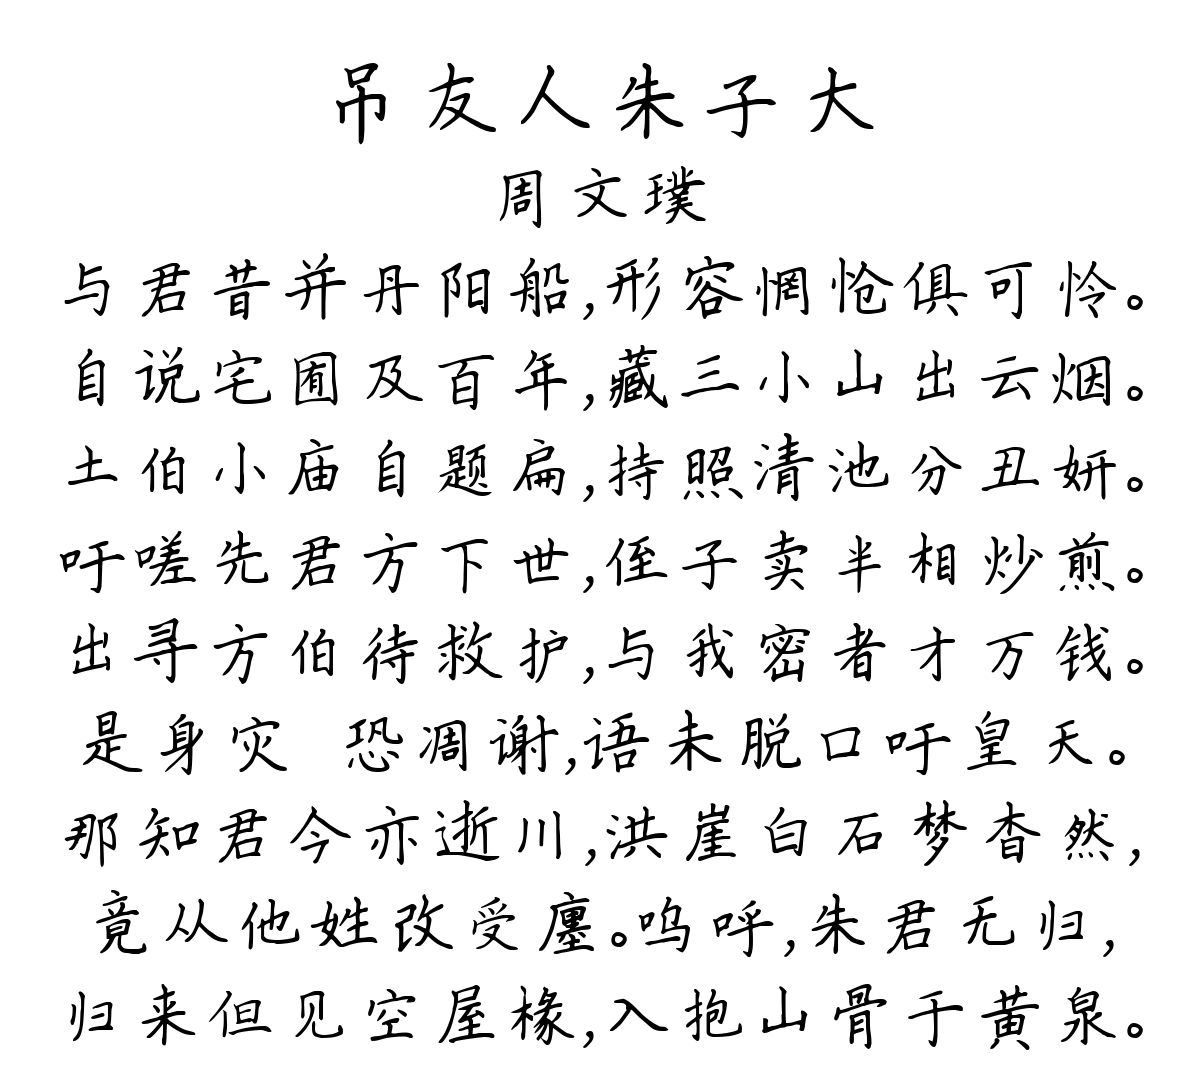 吊友人朱子大
周文璞
与君昔并丹阳船,形容惘怆俱可怜。
自说宅囿及百年,藏三小山出云烟。
土伯小庙自题扁,持照清池分丑妍。
吁嗟先君方下世,侄子卖半相炒煎。
出寻方伯待救护,与我密者才万钱。
是身灾 恐凋谢,语未脱口吁皇天。
那知君今亦逝川,洪崖白石梦杳然,
竟从他姓改受廛。呜呼,朱君无归,
归来但见空屋椽,入抱山骨于黄泉。